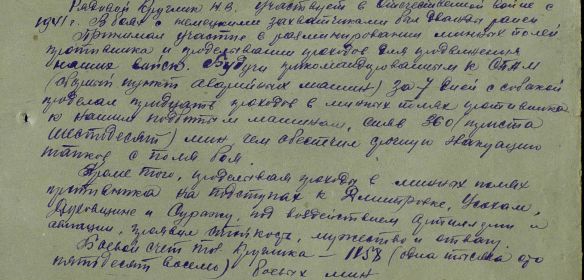 Рядовой Кругляк Н.З. Участвует в Отечественной войне с
1941 г. В боях с немецкими захватчиками был дважды ранен
Принимал участие в разминировании минных полей
противника и проделывании проходов для продвижения
наших войск. Будучи прикомандированным к СПАМ
(сборный пункт аварийных машин) за 7 дней с собакой
проделал тридцать проходов в минных полях противника
к нашим подбитым машинам, сняв 360 (триста
шестьдесят) мин чем обеспечил срочную эвакуацию
танков с поля боя.
Кроме того, проделывая проходы в минных полях
противника на подступах к Дмитровке,
Духовщине и Суражу, под воздействием артиллерии и
авиации, проявил стойкость, мужество и отвагу.
Боевой счет тов. Кругляка – 1158 (одна тысяча сто
пятьдесят восемь) боевых мин